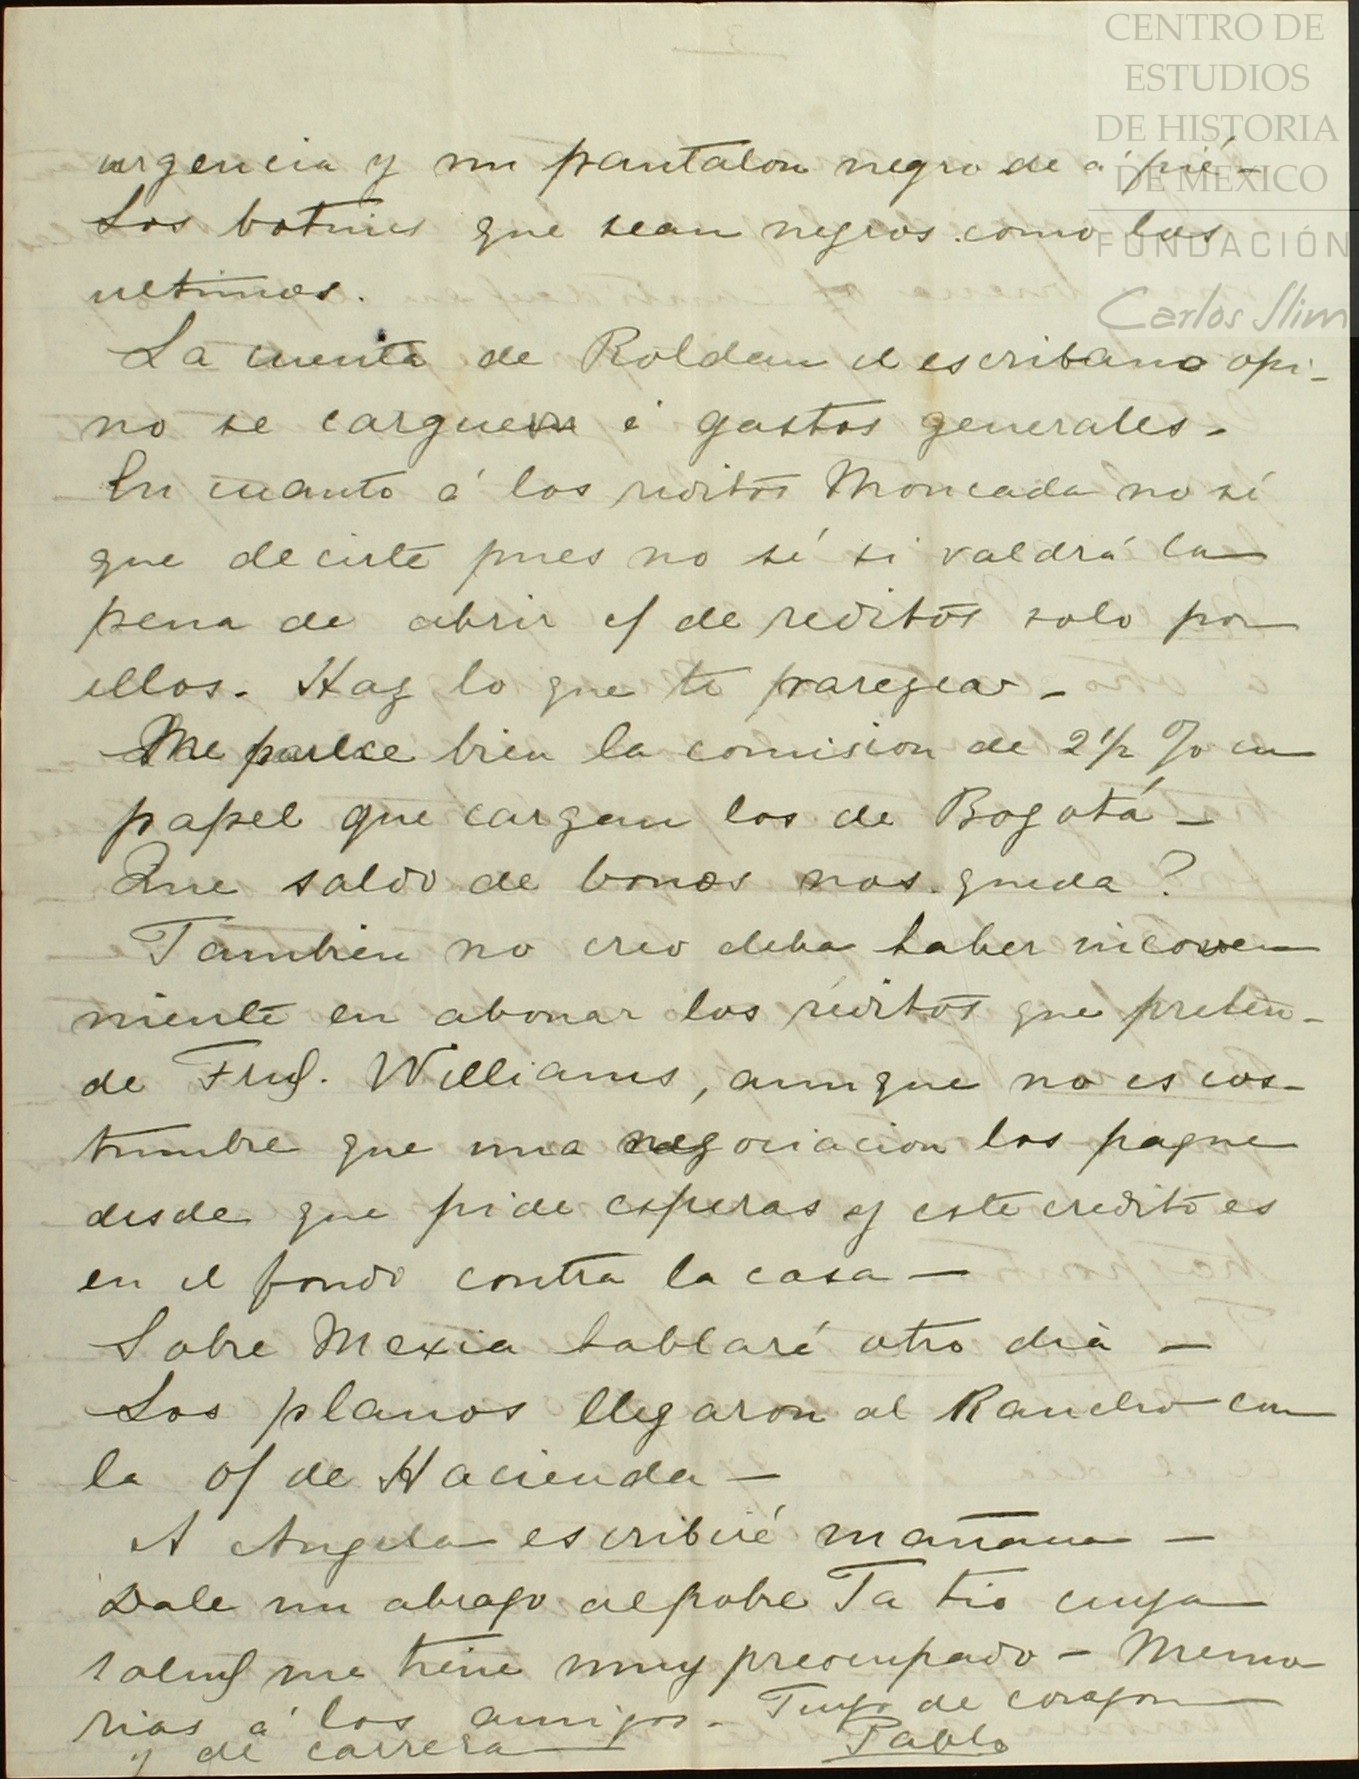 CENTRO DE
ESTUDIOS
DE HISTORIA
DE MÉXICO
FUNDACIÓN
Carlos Slim
urgencia y un pantalon negro de á pié -
Los botines que sean negros como los
ultimos.
La cuenta de Roldan el escribano opi-
no se carguen á gastos generales.
En cuanto á los reditos Moncada no sé
que decirte pues no sé si valdrá la
pena de abrir c/ de reditos solo por
ellos. Haz lo que te parezca -
Me parece bien la comision de 2 1/2 % en
papel que cargan los de Bogotá -
Que saldo de bonos nos queda?
Tambien no creo deba haber inconve
niente en abonar los réditos que preten-
de Williams, aunque no es cos-
tumbre que una negociacion los pague
desde que pide esperas y este credito es
en el fondo contra la casa -
Sobre Mexia hablaré otro dia -
Los planos llegaron al Rancho con
la of de Hacienda -
A Angela escribiré mañana -
Dale un abrazo al pobre Ta tio cuya
salud me tiene muy preocupado - Memo
rias á los amigos. Tuyo de corazon
y de carrera Pablo